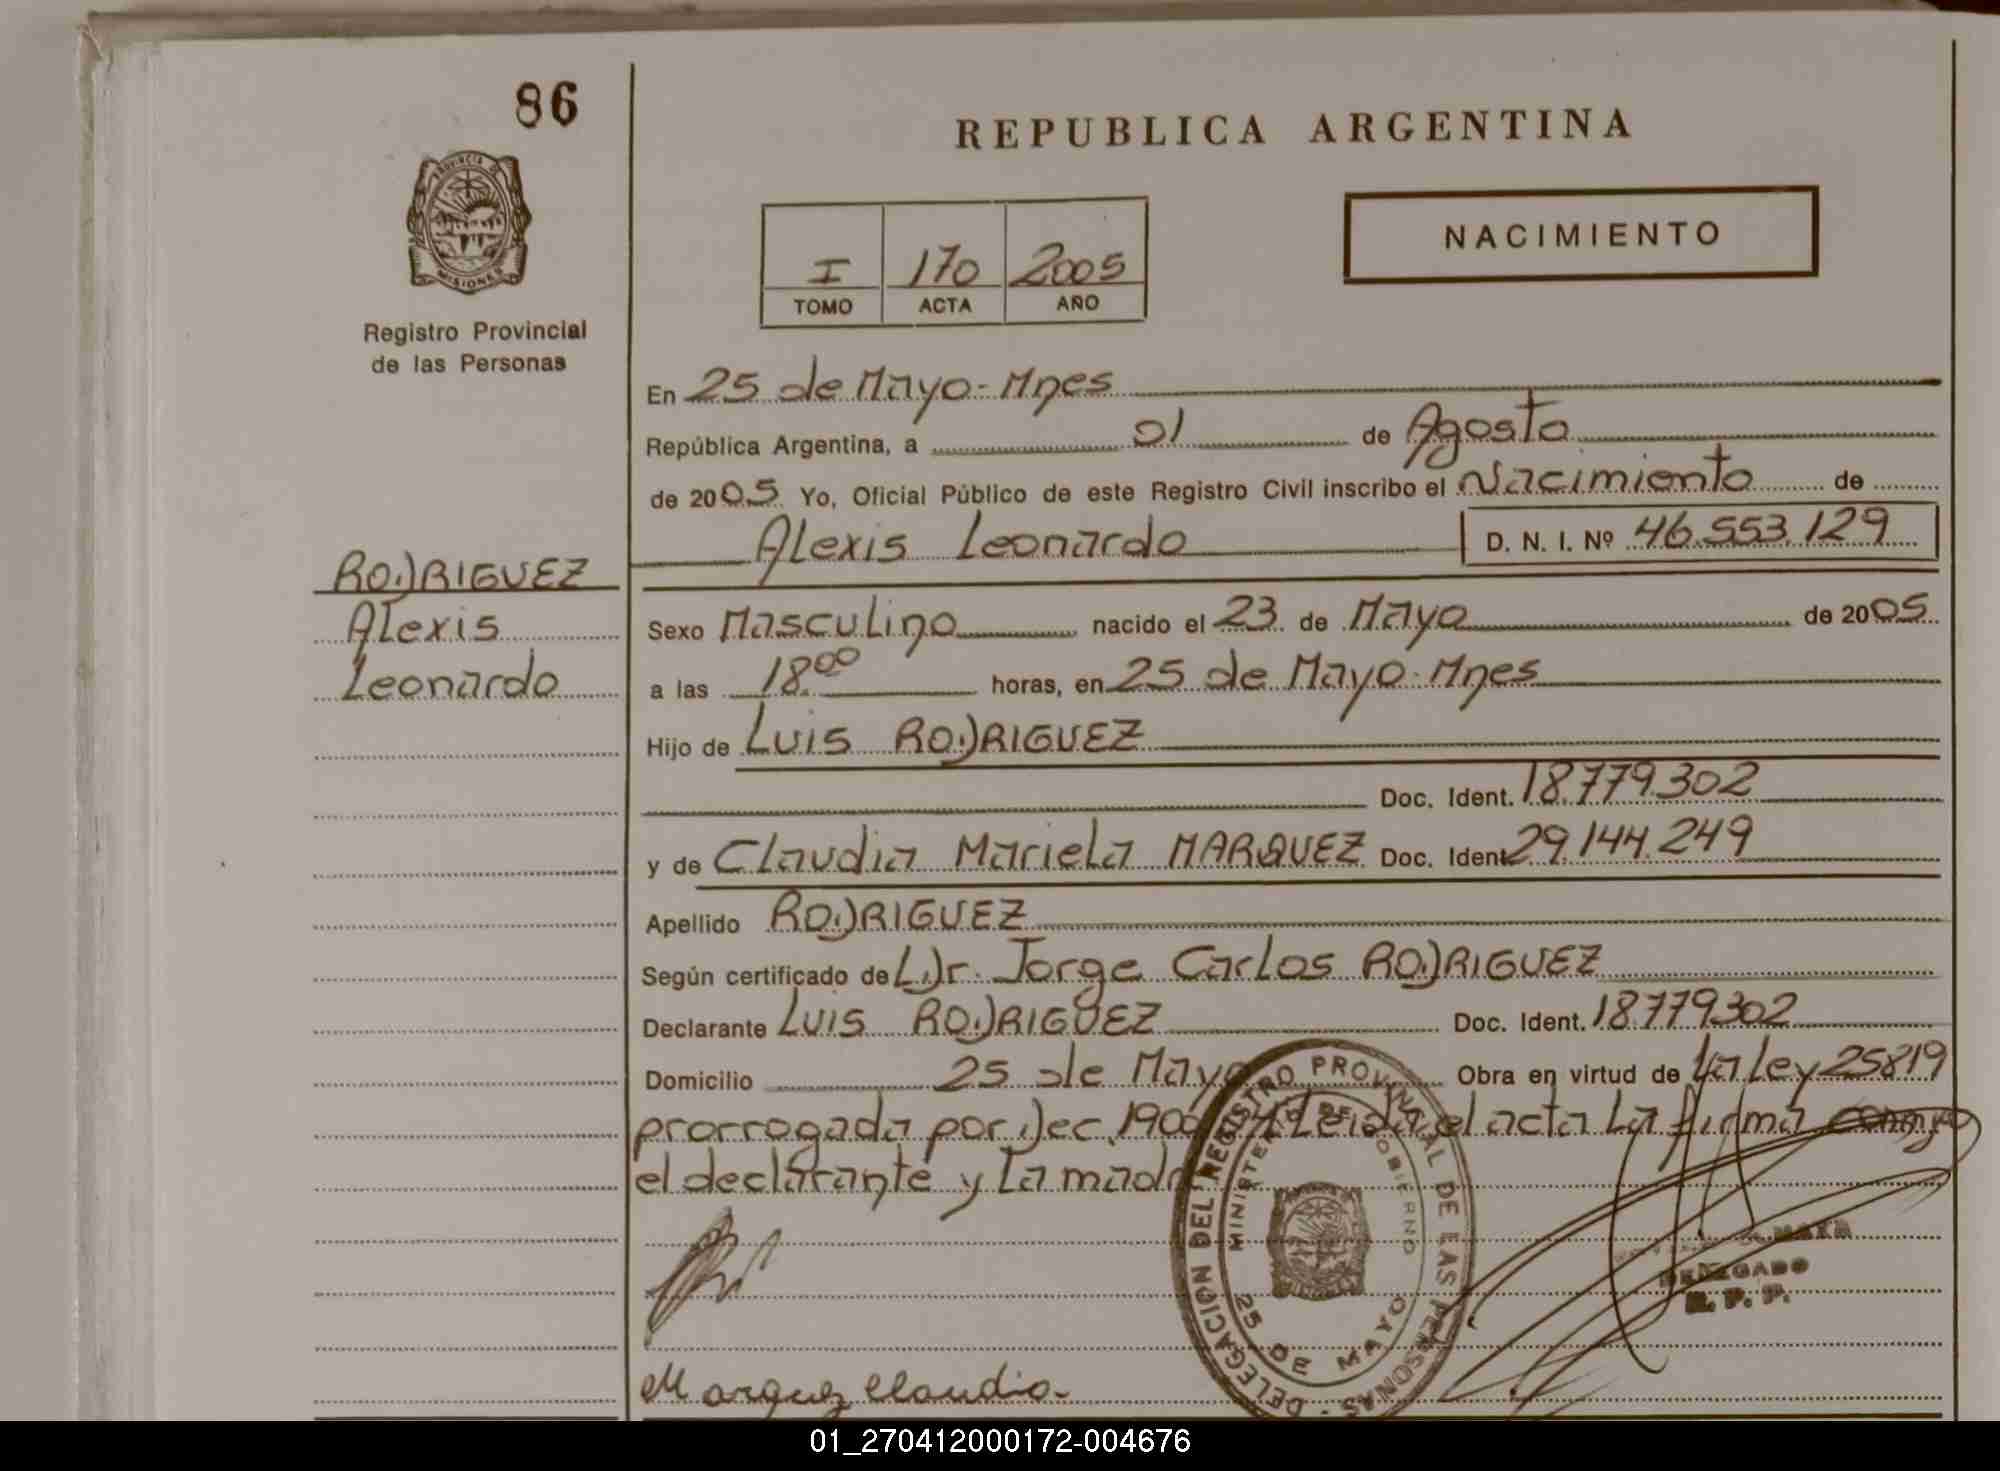 86
REPUBLICA ARGENTINA
PROVINCIA DE
MISIONES
Registro Provincial
de las Personas
I 170 2005
TOMO ACTA AÑO
NACIMIENTO
En 25 de Mayo - Mnes
República Argentina, a 01 de Agosto
de 2005 Yo, Oficial Público de este Registro Civil inscribo el Nacimiento de
Alexis Leonardo D. N. I. Nº 46.553.129
RODRIGUEZ
Alexis
Leonardo
Sexo Masculino nacido el 23 de Mayo de 2005
a las 18.00 horas, en 25 de Mayo - Mnes
Hijo de Luis RODRIGUEZ
Doc. Ident. 18.779.302
y de Claudia Mariela MARQUEZ Doc. Ident 29.144.249
Apellido RODRIGUEZ
Según certificado de Dr. Jorge Carlos RODRIGUEZ
Declarante Luis RODRIGUEZ Doc. Ident. 18779302
Domicilio 25 de Mayo Obra en virtud de la ley 25819
prorrogada por Dec. Leida el acta la firma
el declarante y la madre
DELEGACION DEL REGISTRO PROVINCIAL DE LAS PERSONAS -
MINISTERIO DE GOBIERNO
25 DE MAYO
DELEGADO
R. P. P.
Marquez Claudia.
01_270412000172-004676